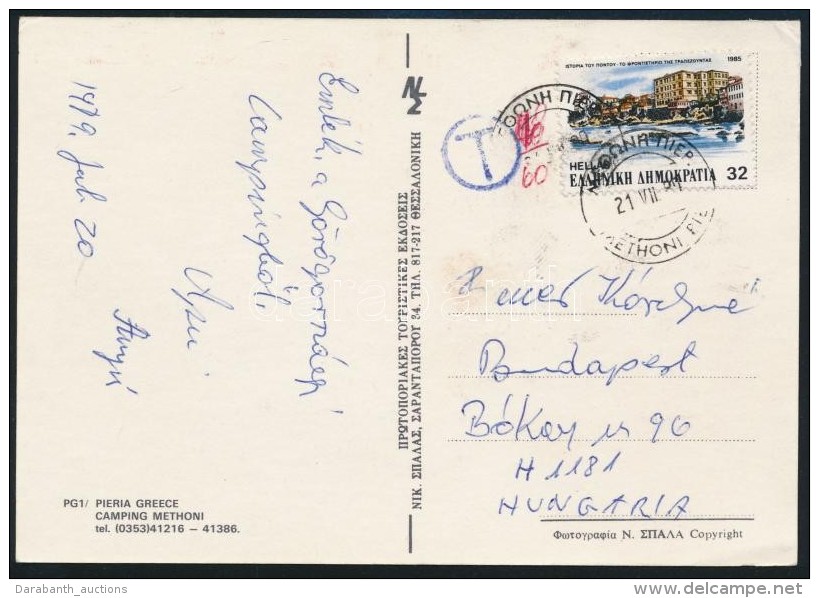 1989. Jul 20
Emlék, a Görögországi
Campingből,
Apu
Anyu
PG1/ PIERIA GREECE
CAMPING METHONI
tel. (0353)41216 – 41386.
ΠΡΩΤΟΠΟΡΙΑΚΕΣ ΤΟΥΡΙΣΤΙΚΕΣ ΕΚΔΟΣΕΙΣ
ΝΙΚ. ΣΠΑΛΑΣ, ΣΑΡΑΝΤΑΠΟΡΟΥ 34. ΤΗΛ. 817-217 ΘΕΣΣΑΛΟΝΙΚΗ
T
60
ΙΣΤΟΡΙΑ ΤΟΥ ΠΟΝΤΟΥ - ΤΟ ΦΡΟΝΤΙΣΤΗΡΙΟ ΤΗΣ ΤΡΑΠΕΖΟΥΝΤΑΣ 1985
HELLAS
ΕΛΛΗΝΙΚΗ ΔΗΜΟΚΡΑΤΙΑ 32
ΜΕΘΩΝΗ ΠΙΕΡ
21 VII 89
METHONI PIE
Budapest
Bókay u 96
H 1181
HUNGARIA
Φωτογραφία Ν. ΣΠΑΛΑ Copyright
darabanth
Darabanth_auctions
delcampe.net